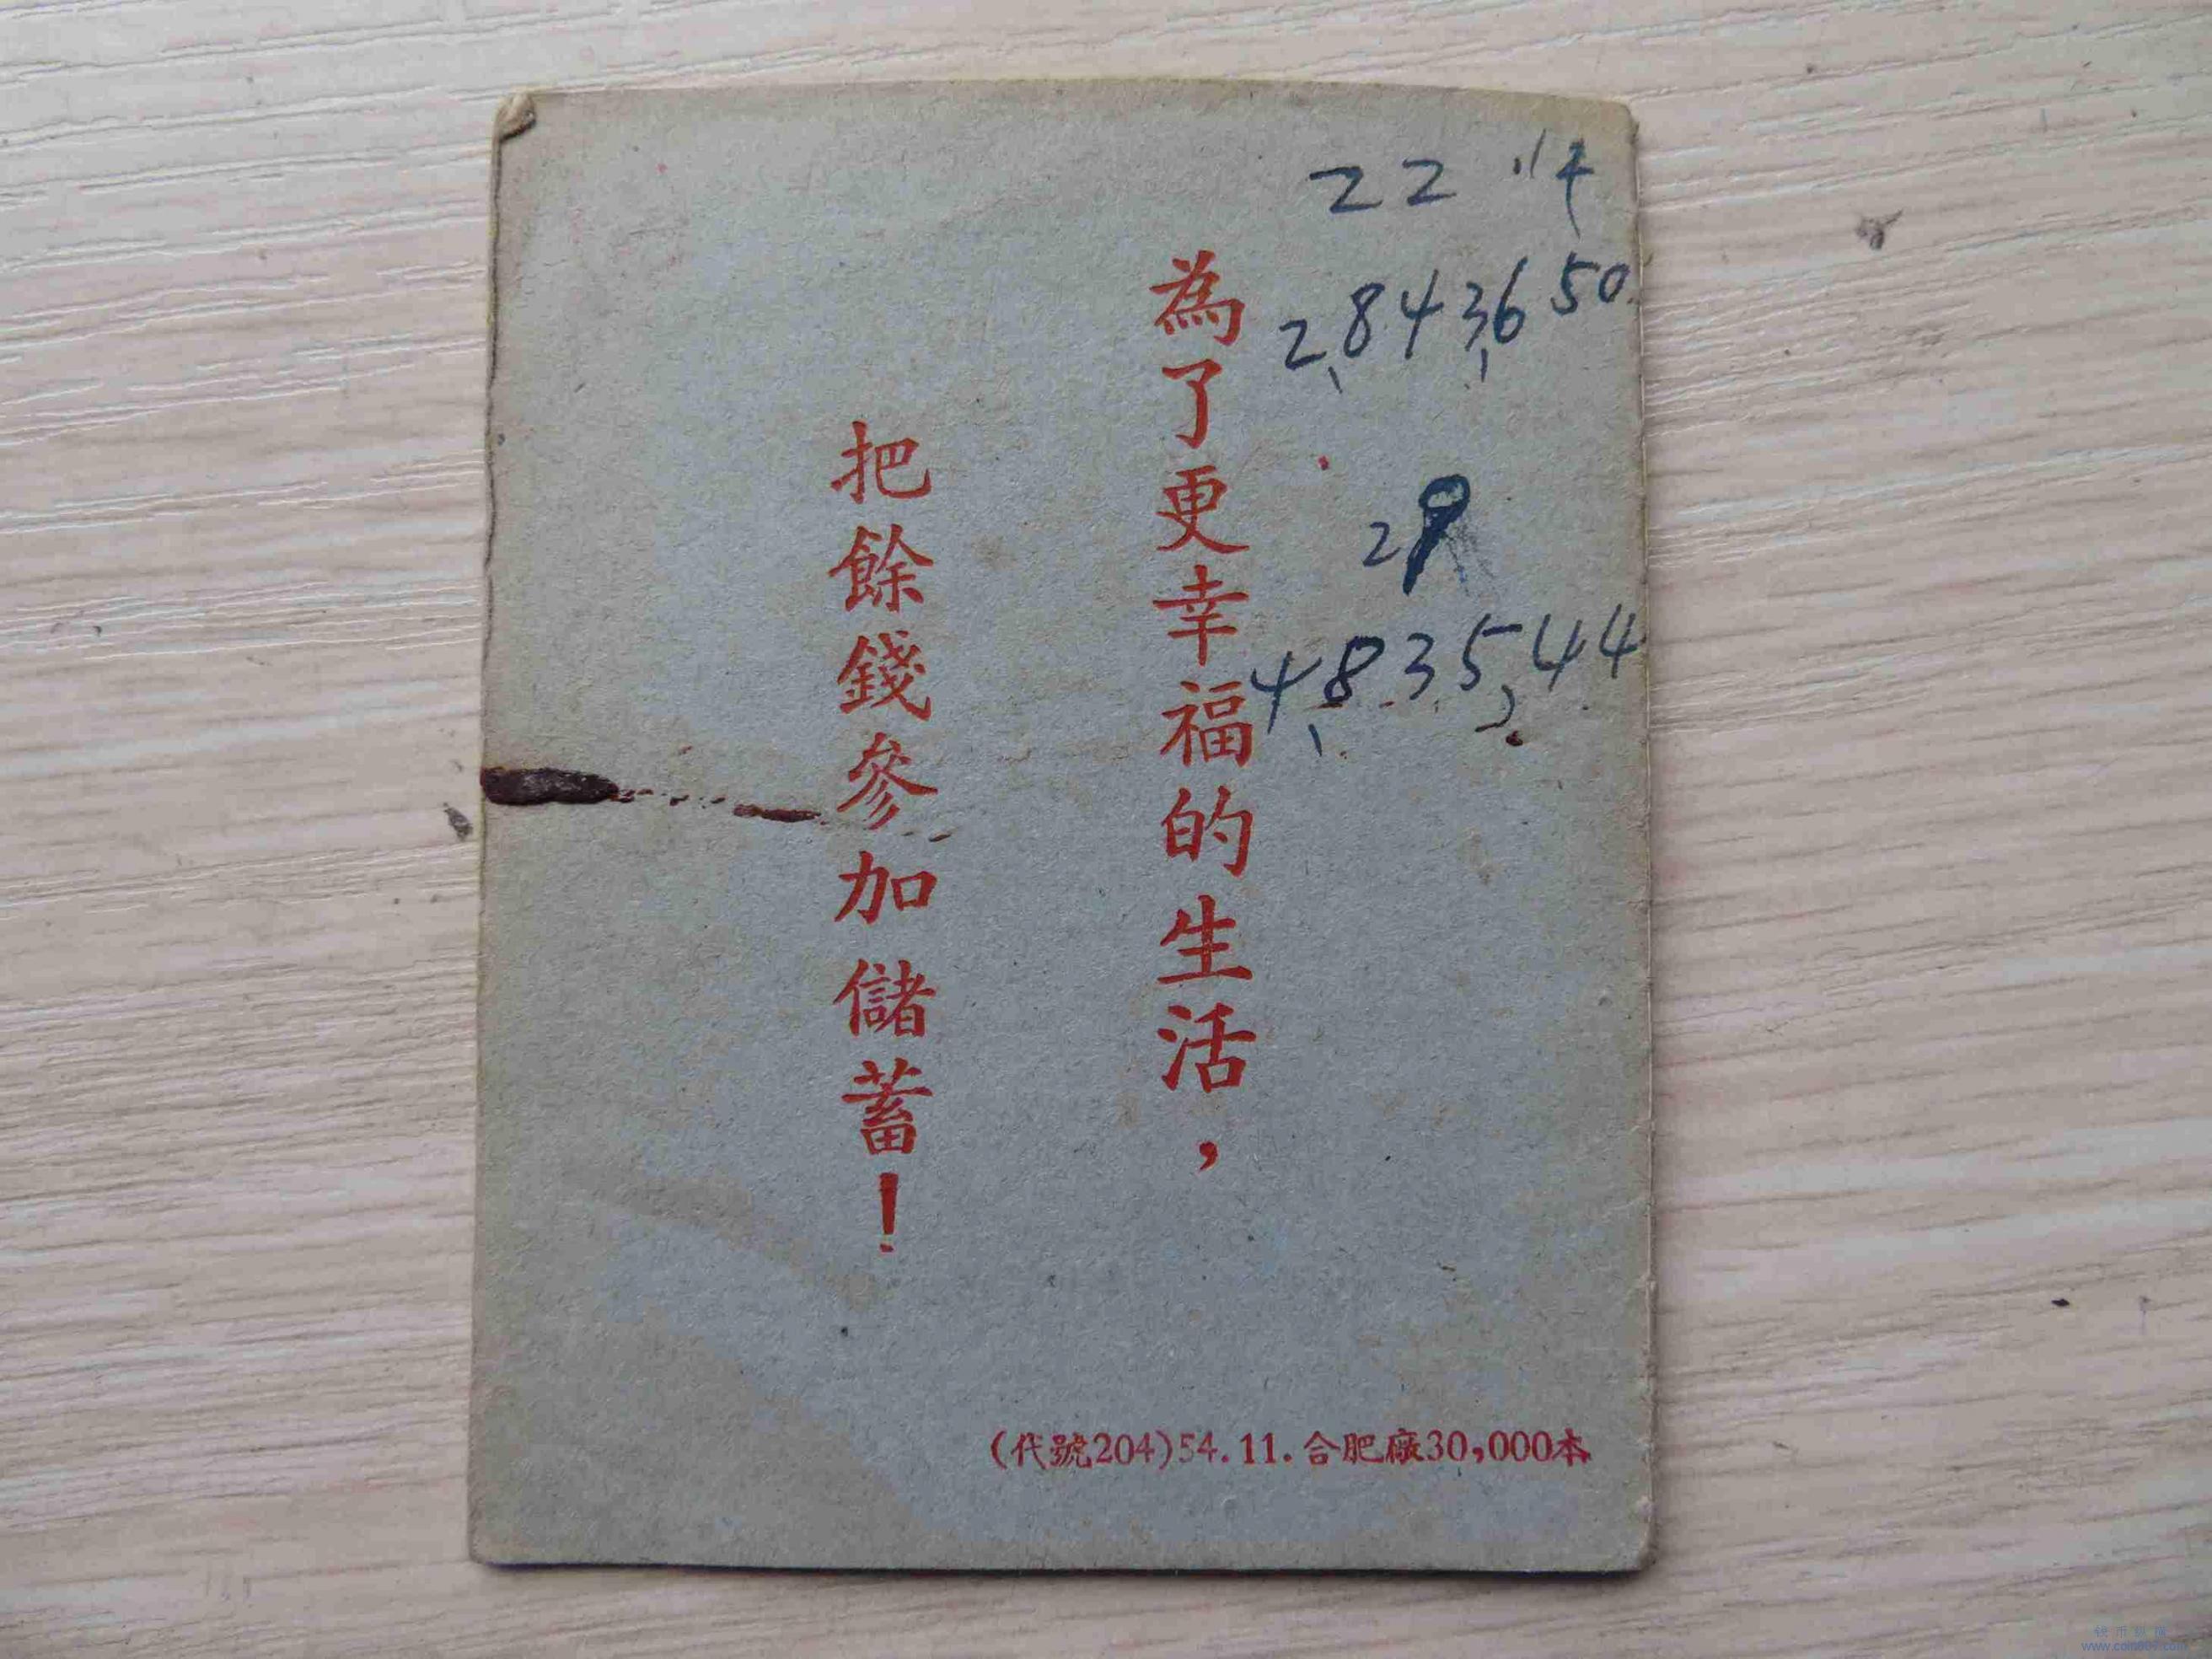 22
2,843,650
29
4,835,44
為了更幸福的生活，
把餘錢參加儲蓄！
(代號204)54.11.合肥廠30,000本